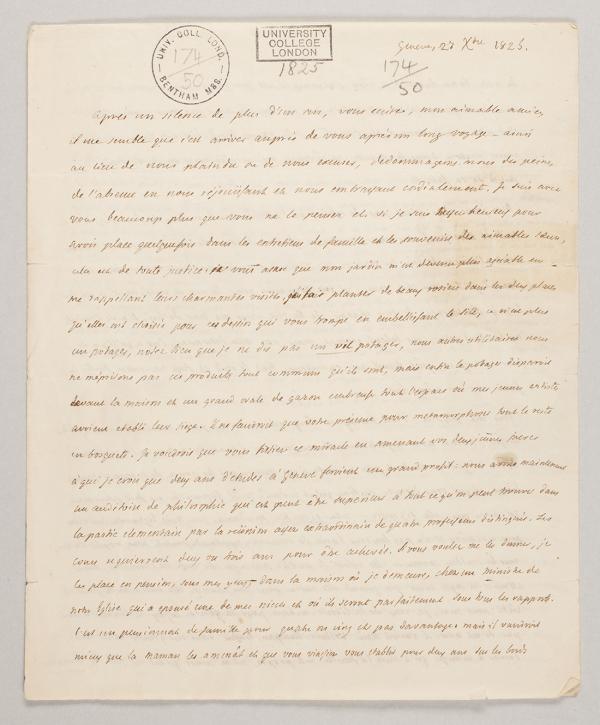 UNIV. COLL. LOND.
174
50
BENTHAM MSS.
UNIVERSITY
COLLEGE
LONDON
1825
174
50
Geneve, 27 Xbre 1825.
Après un silence de plus d'un an, vous écrire, mon aimable amie,
il me semble que c'est arriver auprès de vous après un long voyage – ainsi
au lieu de nous plaindre ou de nous excuser, dedommageons nous des peines
de l'absence en nous réjouissant et nous embrassant cordialement. Je suis avec
vous beaucoup plus que vous ne le pensez et si je suis assez heureux pour
avoir place quelquefois dans les entretiens de famille et les souvenirs des aimables sœurs,
cela est de toute justice. je vous assure que mon jardin m'est devenu plus agréable en
me rappellant leurs charmantes visites, j'ai fait planter de beaux rosiers dans les deux places
qu'elles ont choisies pour ces dessins qui vous trompe en embellissant le site, ce n'est plus
un potager, notez bien que je ne dis pas un vil potager, nous autres utilitaires nous
ne méprisons pas ces produits tout communs qu'ils sont, mais enfin le potager disparoit
devant la maison et un grand ovale de gazon embrasse tout l'espace où mes jeunes artistes
avoient etabli leur siège. Il ne faudroit que votre présence pour metamorphoser tout le reste
en bosquets. Je voudrois que vous fissiez ce miracle en amenant vos deux jeunes freres
à qui je crois que deux ans d'études à Genève feroient un grand profit : nous avons maintenant
un auditoire de philosophie qui est peut être supérieur à tout ce qu'on peut trouver dans
la partie elementaire par la réunion assez extraordinaire de quatre professeurs distingués. Les
cours requierrent deux ou trois ans pour être achevés. Si vous voulez me les donner, je
les place en pension, sous mes yeux dans la maison où je demeure, chez un ministre de
notre Eglise qui a epousé une de mes nieces et où ils seront parfaitement sous tous les rapports.
C'est un pensionnat de famille pour quatre ou cinq et pas davantage. mais il vaudroit
mieux que la maman les amenât et que vous vinssiez vous etablir pour deux ans sur les bords